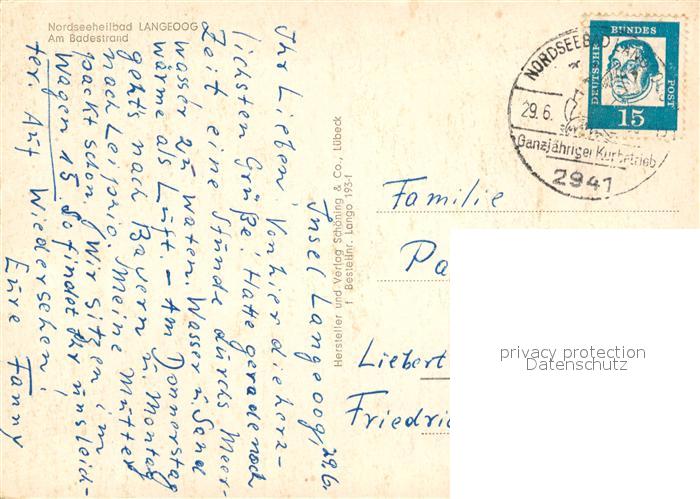 Nordseeheilbad LANGEOOG
Am Badestrand
Insel Langeoog, 29.6.
Ihr Lieben! Von hier die herz-
lichsten Grüße! Hatte gerade noch
Zeit eine Stunde durchs Meer-
wasser zu waten. Wasser u. Sand
wärme als Luft. - Am Donnerstag
gehts nach Bayern u. Montag
nach Leipzig. Meine Mutter
packt schon. Wir sitzen im
Wagen 15. So findet Ihr uns leich-
ter. Auf Wiedersehen!
Eure Fanny
Hersteller und Verlag Schöning & Co., Lübeck
Bestellnr. Lango 193-1
NORDSEEBAD
29.6.
Ganzjähriger Kurbetrieb
2941
DEUTSCHE
BUNDES
POST
15
Familie
Pa
Liebert
Friedric
privacy protection
Datenschutz